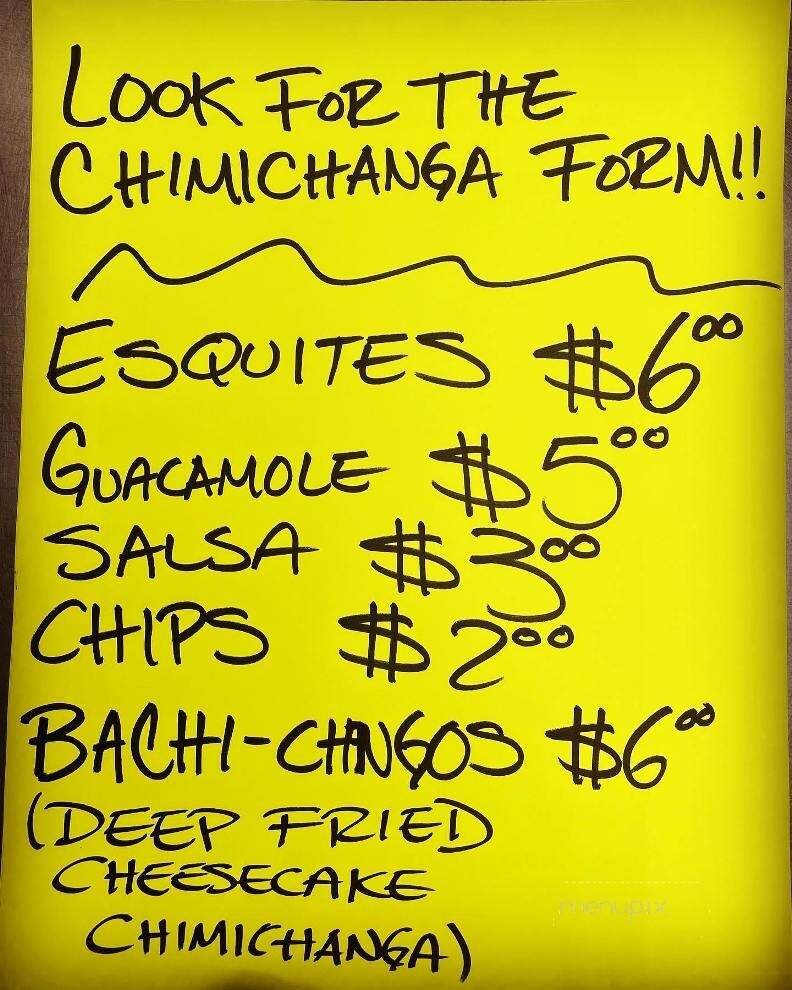 LOOK FOR THE
CHIMICHANGA FORM!!
ESQUITES $6⁰⁰
GUACAMOLE $5⁰⁰
SALSA $3⁰⁰
CHIPS $2⁰⁰
BACHI-CHINGOS $6⁰⁰
(DEEP FRIED
CHEESECAKE
CHIMICHANGA)
menupix